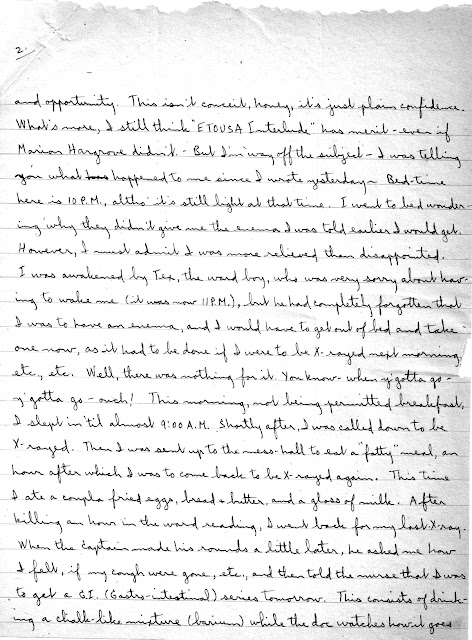 2.
and opportunity. This isn't conceit, honey, it's just plain confidence.
What's more, I still think "ETOUSA Interlude" has merit - even if
Marion Hargrove didn't. - But I'm way off the subject - I was telling
you what happened to me since I wrote yesterday - Bed-time
here is 10 P.M., altho' it's still light at that time. I went to bed wonder-
ing why they didn't give me the enema I was told earlier I would get.
However, I must admit I was more relieved than disappointed.
I was awakened by Tex, the ward boy, who was very sorry about hav-
ing to wake me (it was now 11 P.M.), but he had completely forgotten that
I was to have an enema, and I would have to get out of bed and take
one now, as it had to be done if I were to be X-rayed next morning,
etc., etc. Well, there was nothing for it. You know - when y'gotta go -
y'gotta go - ouch! This morning, not being permitted breakfast,
I slept in 'til almost 9:00 A.M. Shortly after, I was called down to be
X-rayed. Then I was sent up to the mess-hall to eat a "fatty" meal, an
hour after which I was to come back to be X-rayed again. This time
I ate a coupla fried eggs, bread + butter, and a glass of milk. After
killing an hour in the ward reading, I went back for my last X-ray.
When the Captain made his rounds a little later, he asked me how
I felt, if my cough were gone, etc., and then told the nurse that I was
to get a G.I. (Gastro-intestinal) series tomorrow. This consists of drink-
ing a chalk-like mixture (barium) while the doc watches how it goes